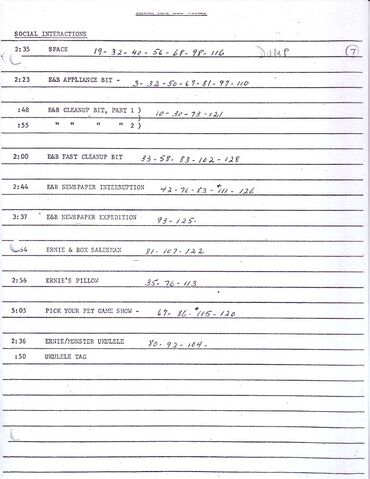 SOCIAL INTERACTIONS
2:35 SPACE 19-32-40-56-68-98-116 (7)
2:23 E&B APPLIANCE BIT - 3-32-50-67-81-97-110
:48 E&B CLEANUP BIT, PART 1 )
10-30-73-121
:55 " " " " 2 )
2:00 E&B FAST CLEANUP BIT 33-58-83-102-128
2:44 E&B NEWSPAPER INTERRUPTION 42-76-83-*111-126
3:37 E&B NEWSPAPER EXPEDITION 93-125-
:54 ERNIE & BOX SALESMAN 81-107-122
2:56 ERNIE'S PILLOW 35-76-113
5:05 PICK YOUR PET GAME SHOW - 67-86-*105-120
2:36 ERNIE/MONSTER UKULELE 80-92-104-
:50 UKULELE TAG